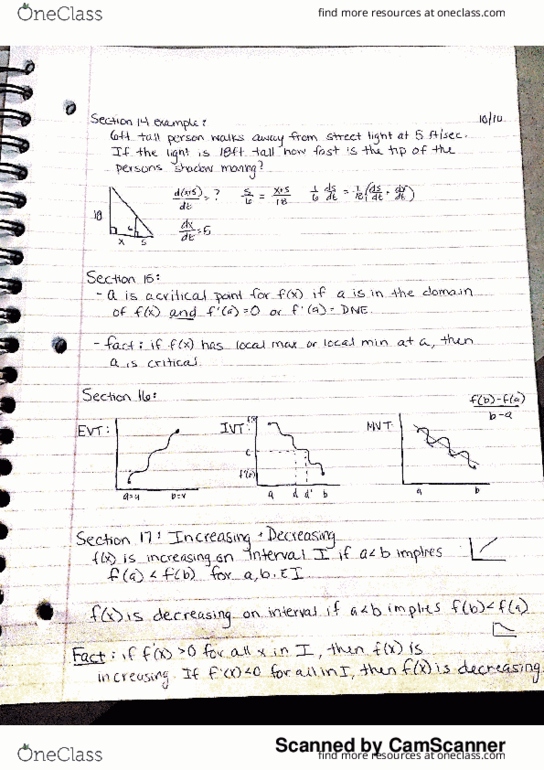 OneClass
find more resources at oneclass.com
10/10
Section 14 example:
6ft tall person walks away from street light at 5 ft/sec.
If the light is 18ft tall how fast is the tip of the
persons shadow moving?
d(x+s)/dt = ? s/6 = x+s/18 1/6 ds/dt = 1/18(ds/dt + dx/dt)
18 6
dx/dt = 5
x s
Section 15:
- a is a critical point for f(x) if a is in the domain
of f(x) and f'(a)=0 or f'(a)=DNE.
- fact: if f(x) has local max or local min at a, then
a is critical.
Section 16:
f(b)-f(a)/b-a
EVT: IVT: MVT:
c
a=u b=v a d d' b a b
Section 17: Increasing + Decreasing
f(x) is increasing on Interval I if a<b implies
f(a) < f(b) for a,b ∈ I
f(x) is decreasing on interval if a<b implies f(b)<f(a)
Fact: if f(x) >0 for all x in I, then f(x) is
increasing. If f'(x)<0 for all in I, then f(x) is decreasing.
Scanned by CamScanner
OneClass
find more resources at oneclass.com